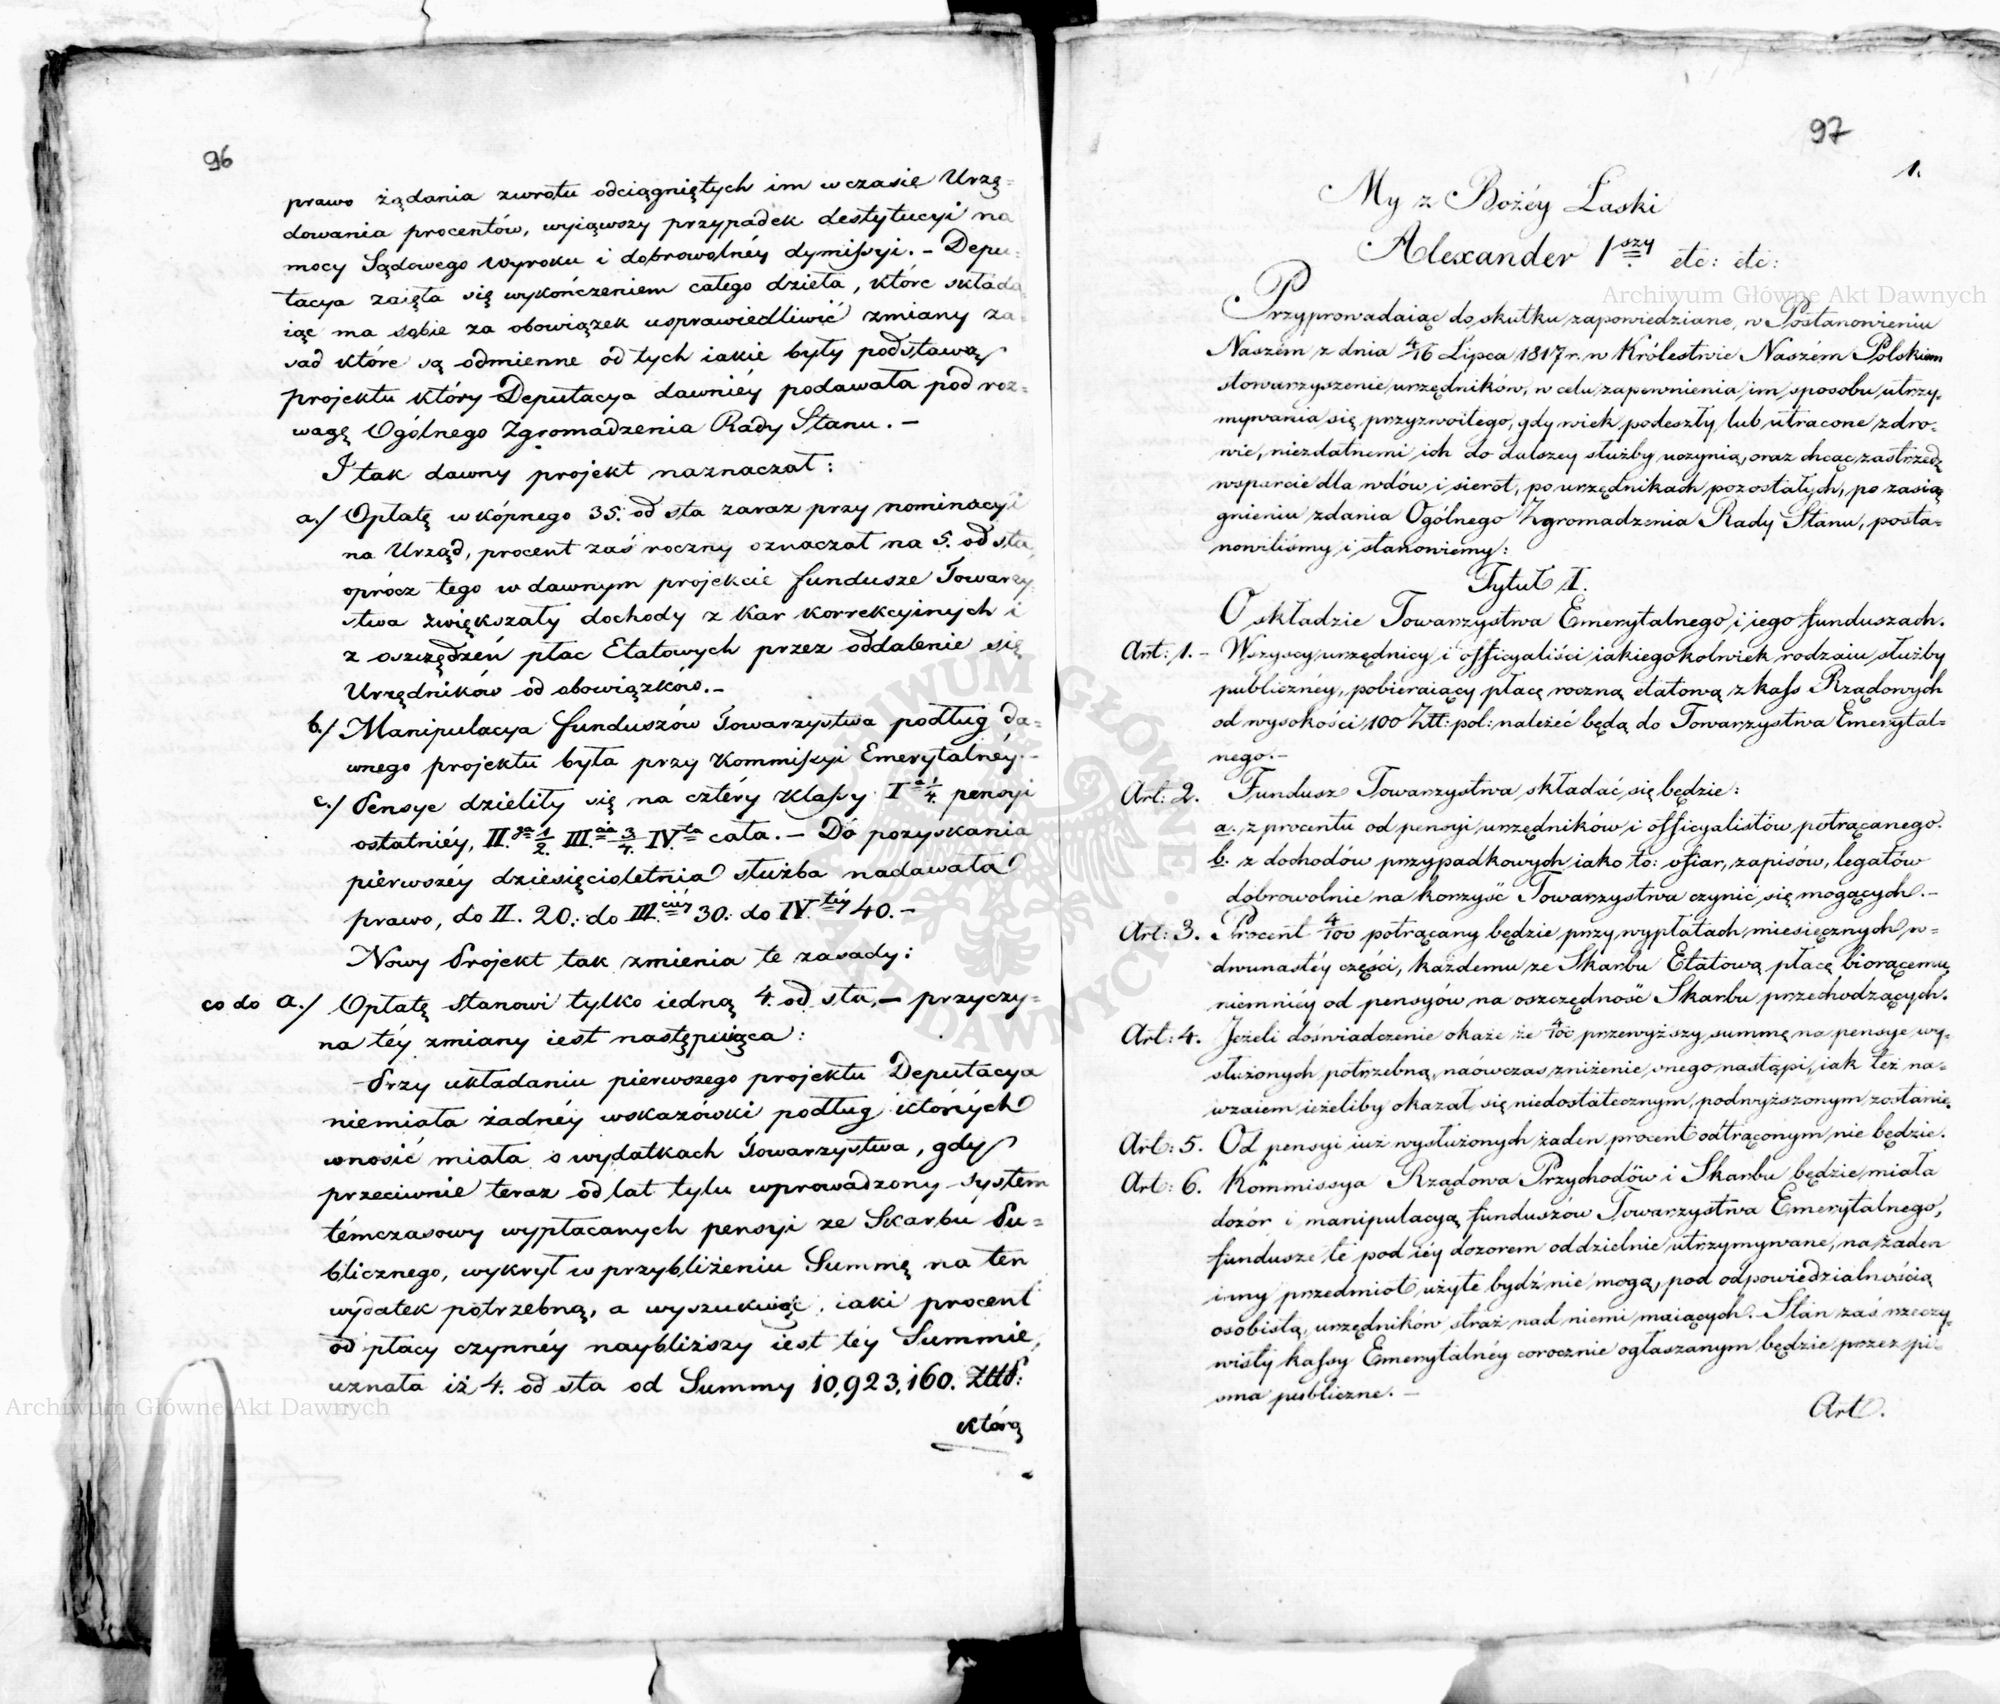 96
prawo żądania zwrotu odciągniętych im w czasie Urzę=
dowania procentów, wyiąwszy przypadek destytucyi na
mocy Sądowego Wyroku i dobrowolnéy dymissyi. – Depu=
tacya zaięta się wykończeniem całego dzieła, które składa
iąc ma sobie za obowiązek usprawiedliwić zmiany za=
sad które są odmienne od tych iakie były podstawą
projektu który Deputacya dawniéy podawała pod roz=
wagę Ogólnego Zgromadzenia Rady Stanu. –
I tak dawny projekt naznaczał:
a./ Opłatę wkópnego 35. od sta zaraz przy nominacyi
na Urząd, procent zaś roczny oznaczał na 5. od sta,
oprócz tego w dawnym projekcie fundusze Towarzy
stwa zwiększały dochody z kar korrekcyinych i
z oszczędzeń płac Etatowych przez oddalenie się
Urzędników od obowiązków. –
b./ Manipulacya funduszów Towarzystwa podług da=
wnego projektu była przy Kommissyi Emerytalnéy. –
c./ Pensye dzieliły się na cztéry Klassy I a 1/4. pensyi
ostatniéy, II. ga 1/2. III. cia 3/4. IV. ta cała. – Do pozyskania
pierwszéy dziesięcioletnia służba nadawała
prawo, do II. 20.: do III. ciéy 30.: do IV. téy 40. –
Nowy Projekt tak zmienia te zasady:
co do a./ Opłatę stanowi tylko iedną 4. od sta, – przyczy=
na téy zmiany iest następuiąca:
Przy układaniu pierwszego projektu Deputacya
niemiała żadnéy wskazówki podług których
wnosić miała o wydatkach Towarzystwa, gdy
przeciwnie teraz od lat tylu wprowadzony system
témczasowy wypłacanych pensyi ze Skarbu Pu=
blicznego, wykrył w przybliżeniu Summę na ten
wydatek potrzebną, a wyszukuiąc, iaki procent
od płacy czynnéy naybliższy iest téy Summie,
uznała iż 4. od sta od Summy 10,923,160. Złłp:
którą
97
1.
My z Bożéy Łaski
Alexander 1szy etc: etc:
Przyprowadaiąc do skutku zapowiedziane, w Postanowieniu
Naszém z dnia 4/16 Lipca 1817 r. w Królestwie Naszém Polskiem
stowarzyszenie urzędników, w celu zapewnienia im sposobu utrzy=
mywania się przyzwoitego, gdy wiek podeszły lub utracone zdro=
wie, niezdatnemi ich do dalszey służby uczynią, oraz chcąc zastrzedz
wsparcie dla wdów i sierot, po urzędnikach pozostałych, po zasią
gnieniu zdania Ogólnego Zgromadzenia Rady Stanu, posta=
nowiliśmy i stanowiemy:
Tytuł I.
O składzie Towarzystwa Emerytalnego i iego funduszach.
Art: 1. – Wszyscy urzędnicy i officyaliści iakiegokolwiek rodzaiu służby
publicznéy, pobieraiący płacę roczną etatową z kass Rządowych
od wysokości 100 Złł: pol: należeć będą do Towarzystwa Emerytal=
nego. –
Art: 2. Fundusz Towarzystwa składać się będzie:
a. z procentu od pensyi urzędników i officyalistów potrącanego.
b. z dochodów przypadkowych iako to: ofiar, zapisów, legatów
dobrowolnie na korzyść Towarzystwa czynić się mogących. –
Art: 3. Procent 4/100 potrącany będzie przy wypłatach miesięcznych w=
dwunastéy części, każdemu ze Skarbu Etatową płacę biorącemu,
niemniéy od pensyów na oszczędność Skarbu przechodzących.
Art: 4. Jeżeli doświadczenie okaże że 4/100 przewyższy summę na pensye wy=
służonych potrzebną, naówczas zniżenie onego nastąpi, iak też na=
wzaiem ieżeliby okazał się niedostatecznym, podwyższonym zostanie.
Art: 5. Od pensyi iuż wysłużonych żaden procent odtrąconym nie będzie.
Art: 6. Kommissya Rządowa Przychodów i Skarbu będzie miała
dozór i manipulacyą funduszów Towarzystwa Emerytalnego,
fundusze te pod iéy dozorem oddzielnie utrzymywane, na żaden
inny przedmiot użyte bydź nie mogą, pod odpowiedzialnością
osobistą, urzędników straż nad niemi maiących. Stan zaś rzeczy=
wisty kassy Emerytalnéy corocznie ogłaszanym będzie przez pi=
sma publiczne. –
Art.
Archiwum Główne Akt Dawnych
Archiwum Główne Akt Dawnych
ARCHIWUM GŁÓWNE AKT DAWNYCH